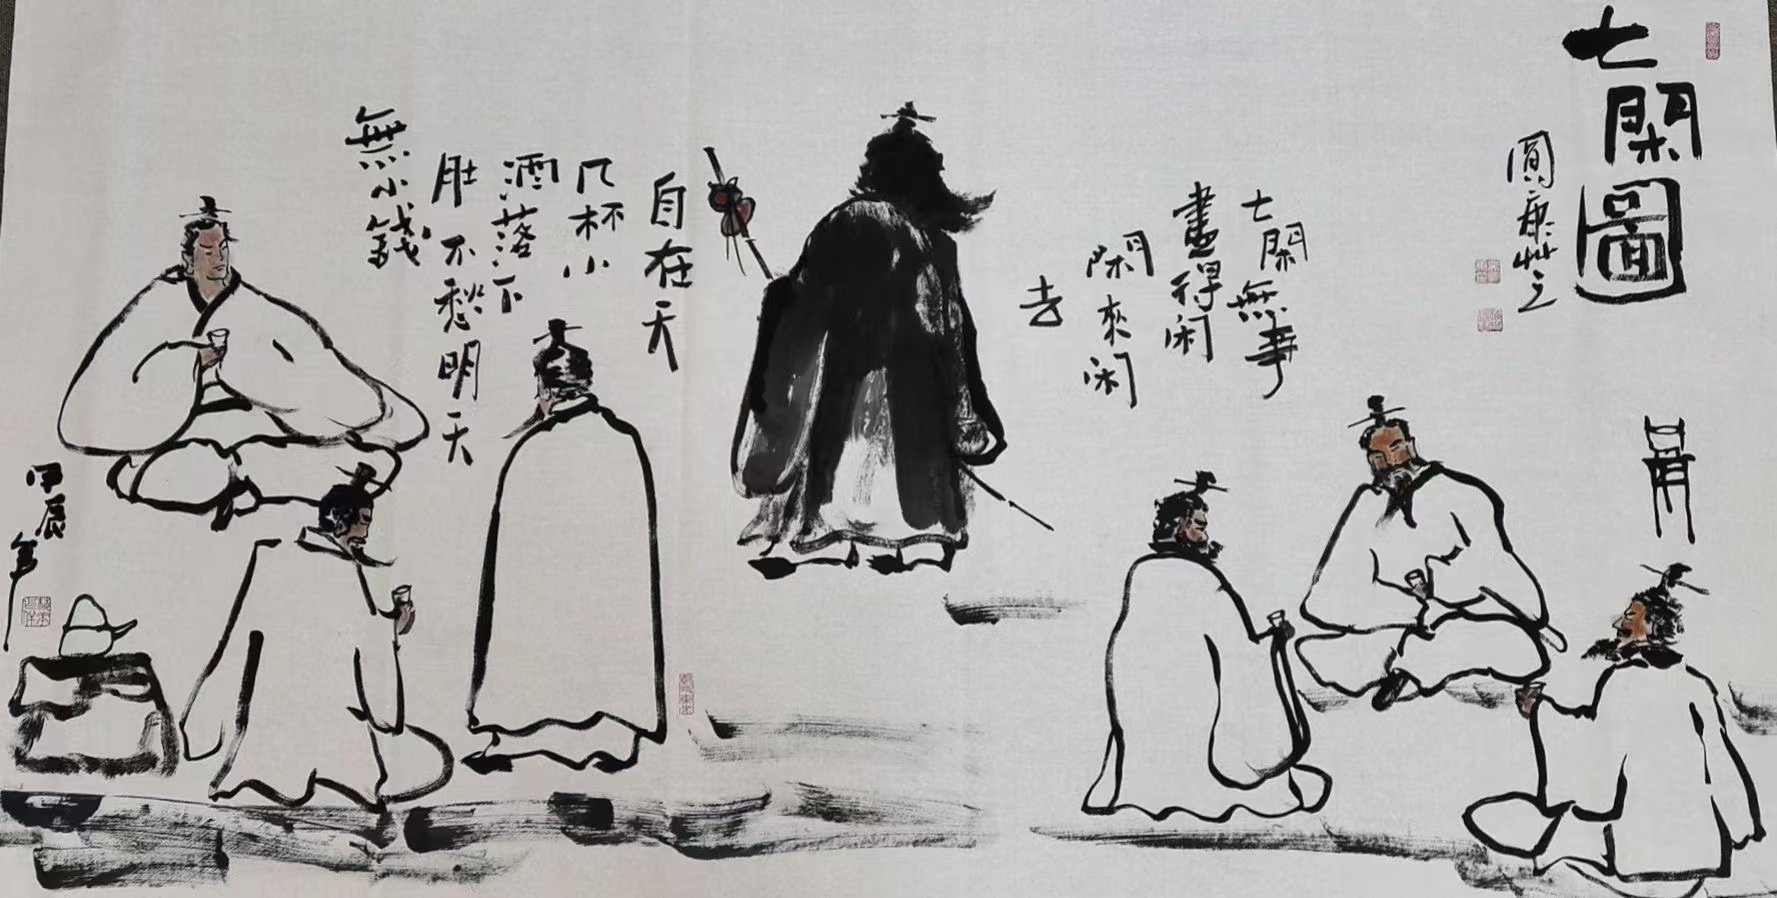 七閑圖
康艸之
七閑無事
畫得闲
閑來闲
去
自在天
几杯小
酒落下
肚不愁明天
無小錢
甲辰年